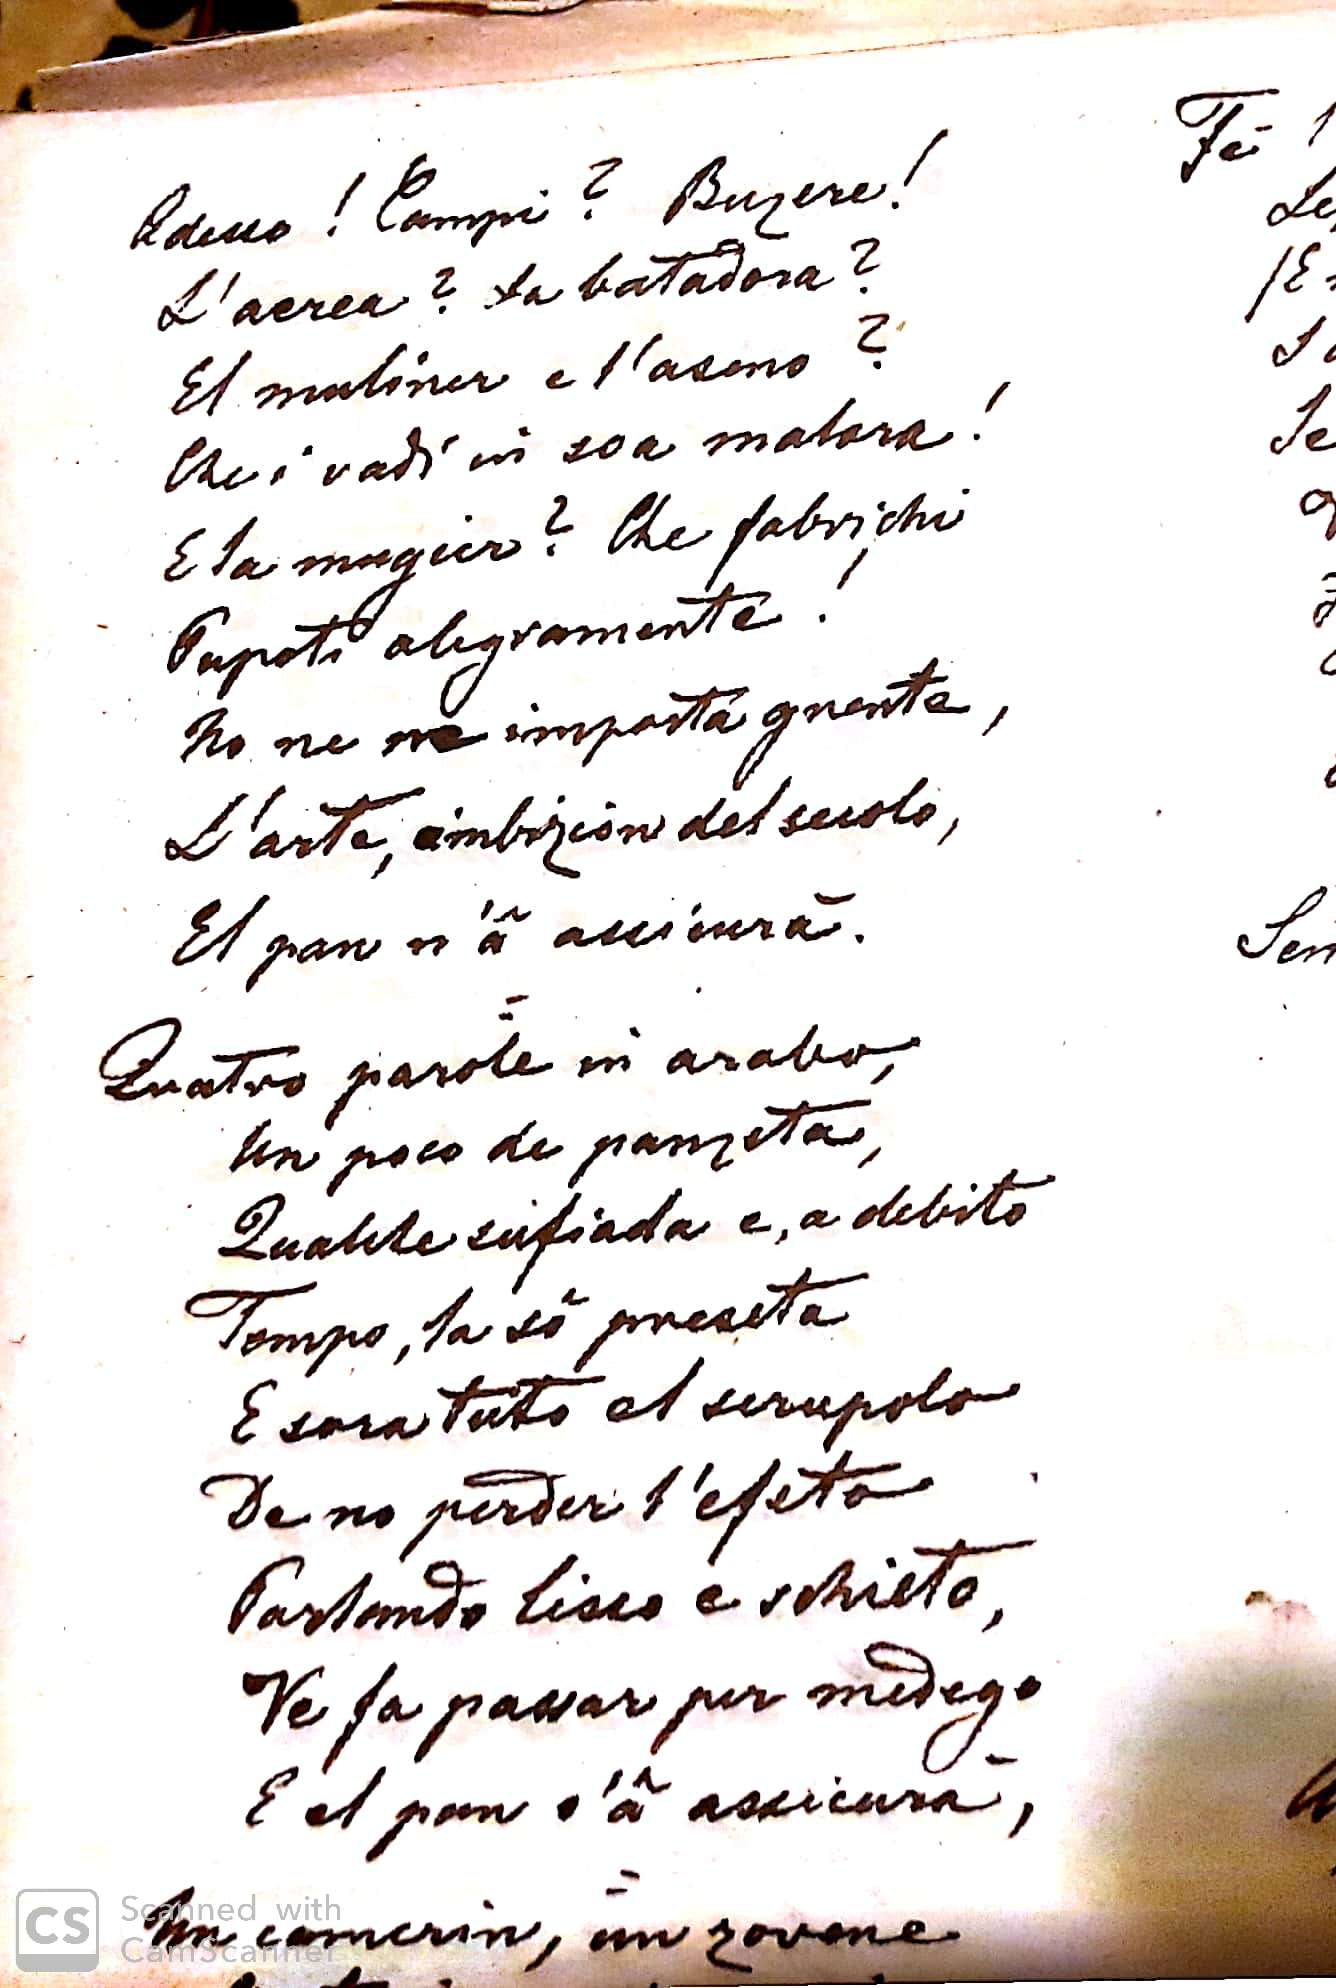 Adesso! Campi? Buzere!
L'aerea? La batadora?
El muliner e l'aseno?
Che i vadi in soa malora!
E la mugier? Che fabrichi
Pupoti alegramente!
No ne ne importa gnente,
L'arte, ambizion del secolo,
El pan n'â assicurā.
Quatro parole in arabo,
Un poco de panzeta,
Qualche sufiada e, a debito
Tempo, la sô preseta
E sora tuto el scrupolo
De no perder l'efeto
Parlando lisso e schieto,
Ve fa passar per medego
E el pan v'â assicurā,
Un camerin, un zovene
Fē
Sen
CS Scanned with
CamScanner